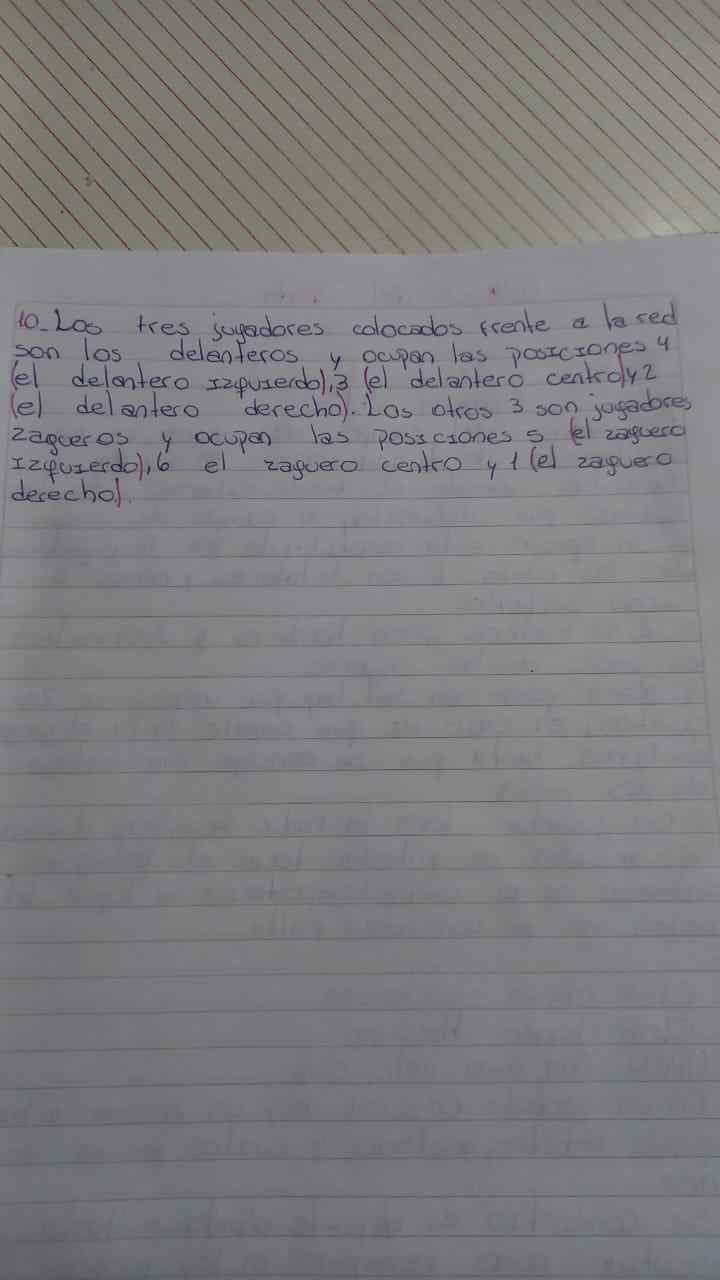 10_ Los tres jugadores colocados frente a la red
son los delanteros y ocupan las posiciones 4
(el delantero izquierdo), 3 (el delantero centro) y 2
(el delantero derecho). Los otros 3 son jugadores
zagueros y ocupan las posiciones 5 (el zaguero
izquierdo), 6 el zaguero centro y 1 (el zaguero
derecho).